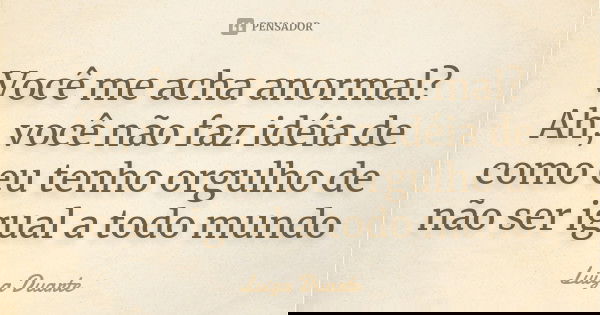 PENSADOR
Você me acha anormal?
Ah, você não faz idéia de
como eu tenho orgulho de
não ser igual a todo mundo
Luiza Duarte